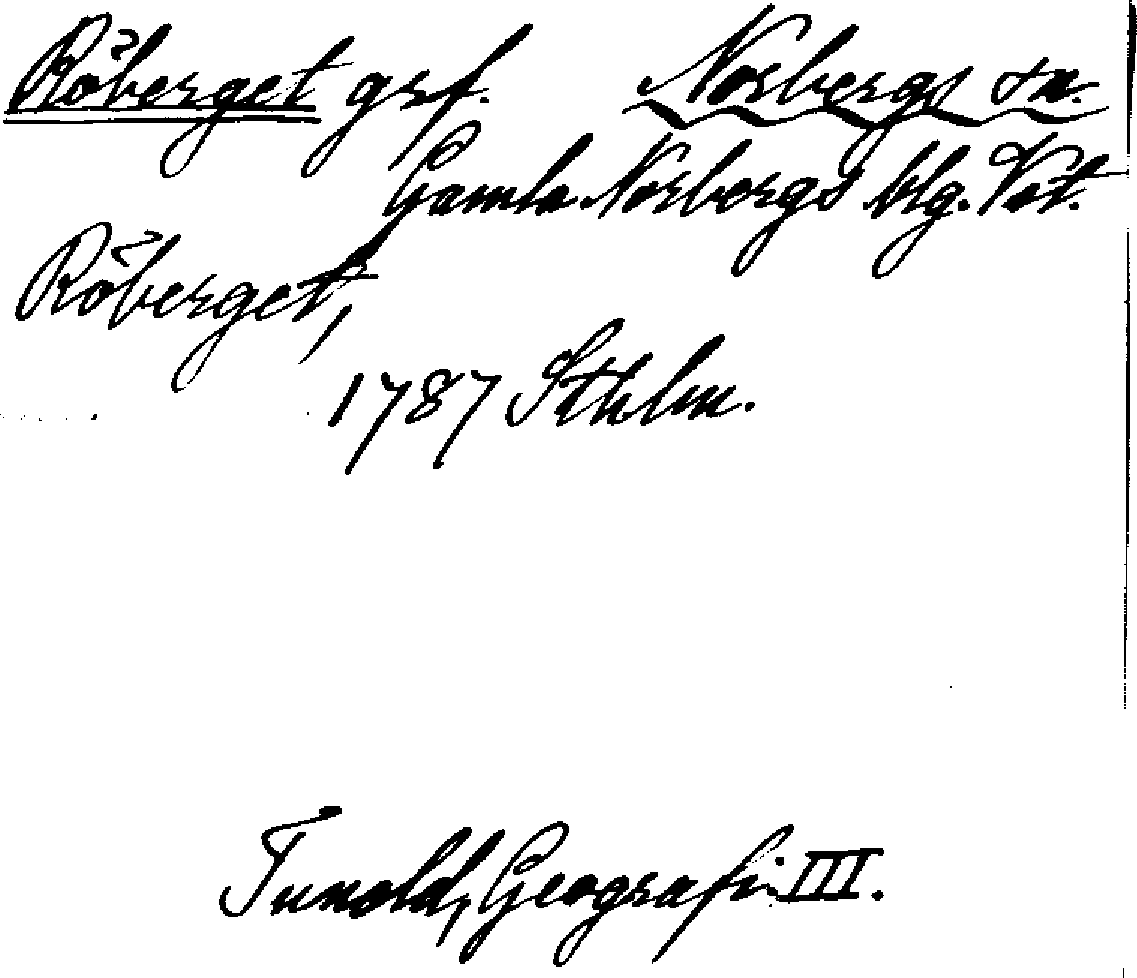 Röberget grf. Norbergs sn.
Gamla Norbergs blg. Vst.
Röberget,
1787 Sthlm.
Tuneld, Geografi III.